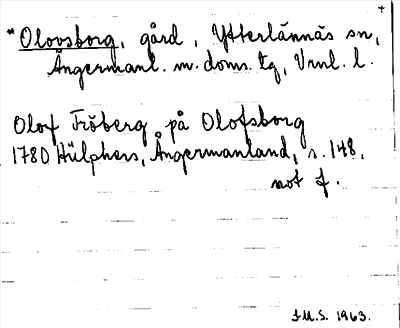 +
*Olovsborg, gård, Ytterlännäs sn,
Ångermanl. m. doms. tg, Vrnl. l.
Olof Fröberg på Olofsborg
1780 Hülphers, Ångermanland, s. 148,
not f.
I.M.S. 1963.